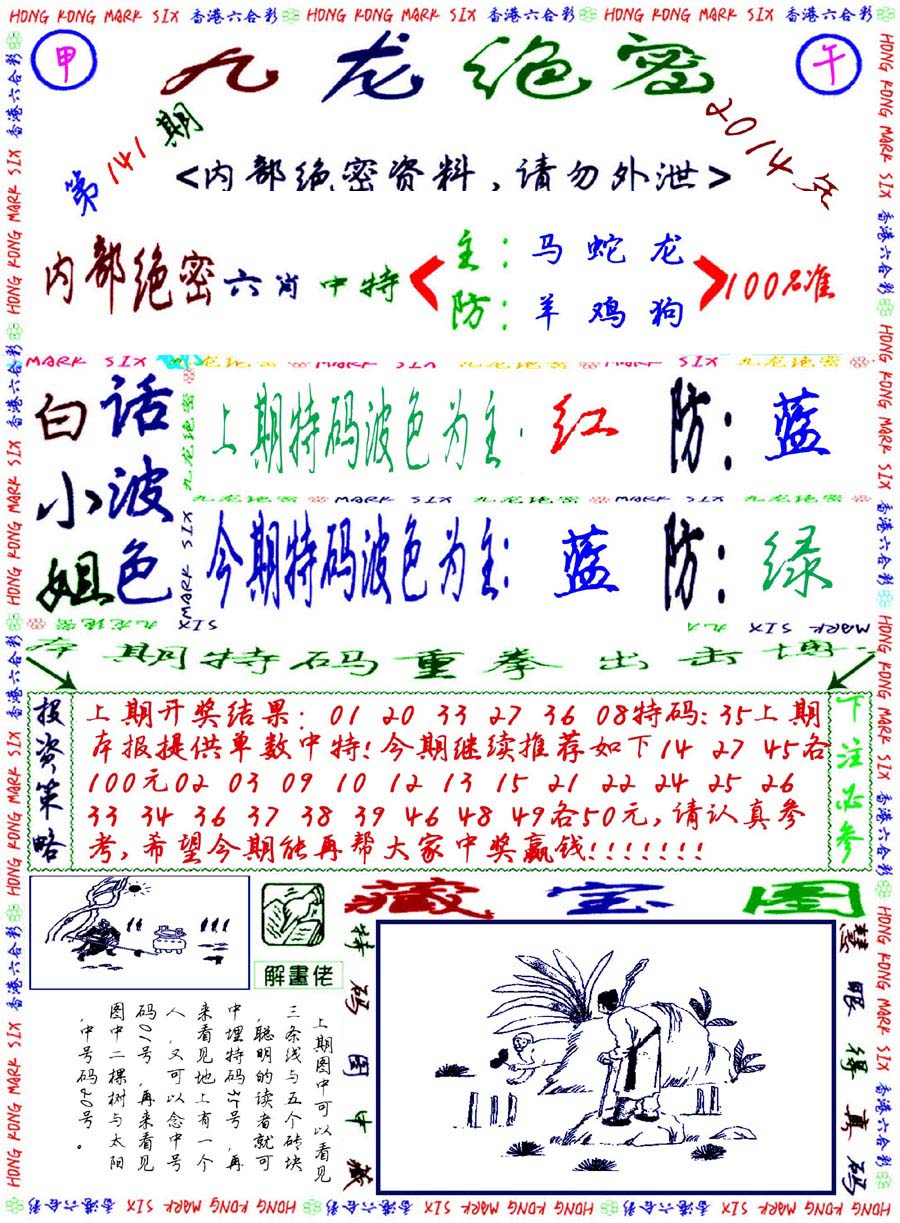 HONG KONG MARK SIX 香港六合彩 HONG KONG MARK SIX 香港六合彩 HONG KONG MARK SIX 香港六合彩
甲
九龙绝密
午
第141期
2014年
<内部绝密资料,请勿外泄>
内部绝密六肖中特
主:马蛇龙
防:羊鸡狗
100%准
白小姐
话波色
上期特码波色为主:红 防:蓝
九龙绝密 MARK SIX 九龙绝密 MARK SIX 九龙绝密
今期特码波色为主:蓝 防:绿
本期特码重拳出击博一
投资策略
上期开奖结果:01 20 33 27 36 08特码:35上期
本报提供单数中特!今期继续推荐如下14 27 45各
100元02 03 09 10 12 13 15 21 22 24 25 26
33 34 36 37 38 39 46 48 49各50元,请认真参
考,希望今期能再帮大家中奖赢钱!!!!!!!
下注必参
藏宝图
解畫佬
特码图中藏
慧眼得真码
上期图中可以看见
三条线与五个砖块
,聪明的读者就可
中埋特码35号,再
来看见地上有一个
人,又可以念中号
码01号,再来看见
图中二棵树与太阳
,中号码20号。